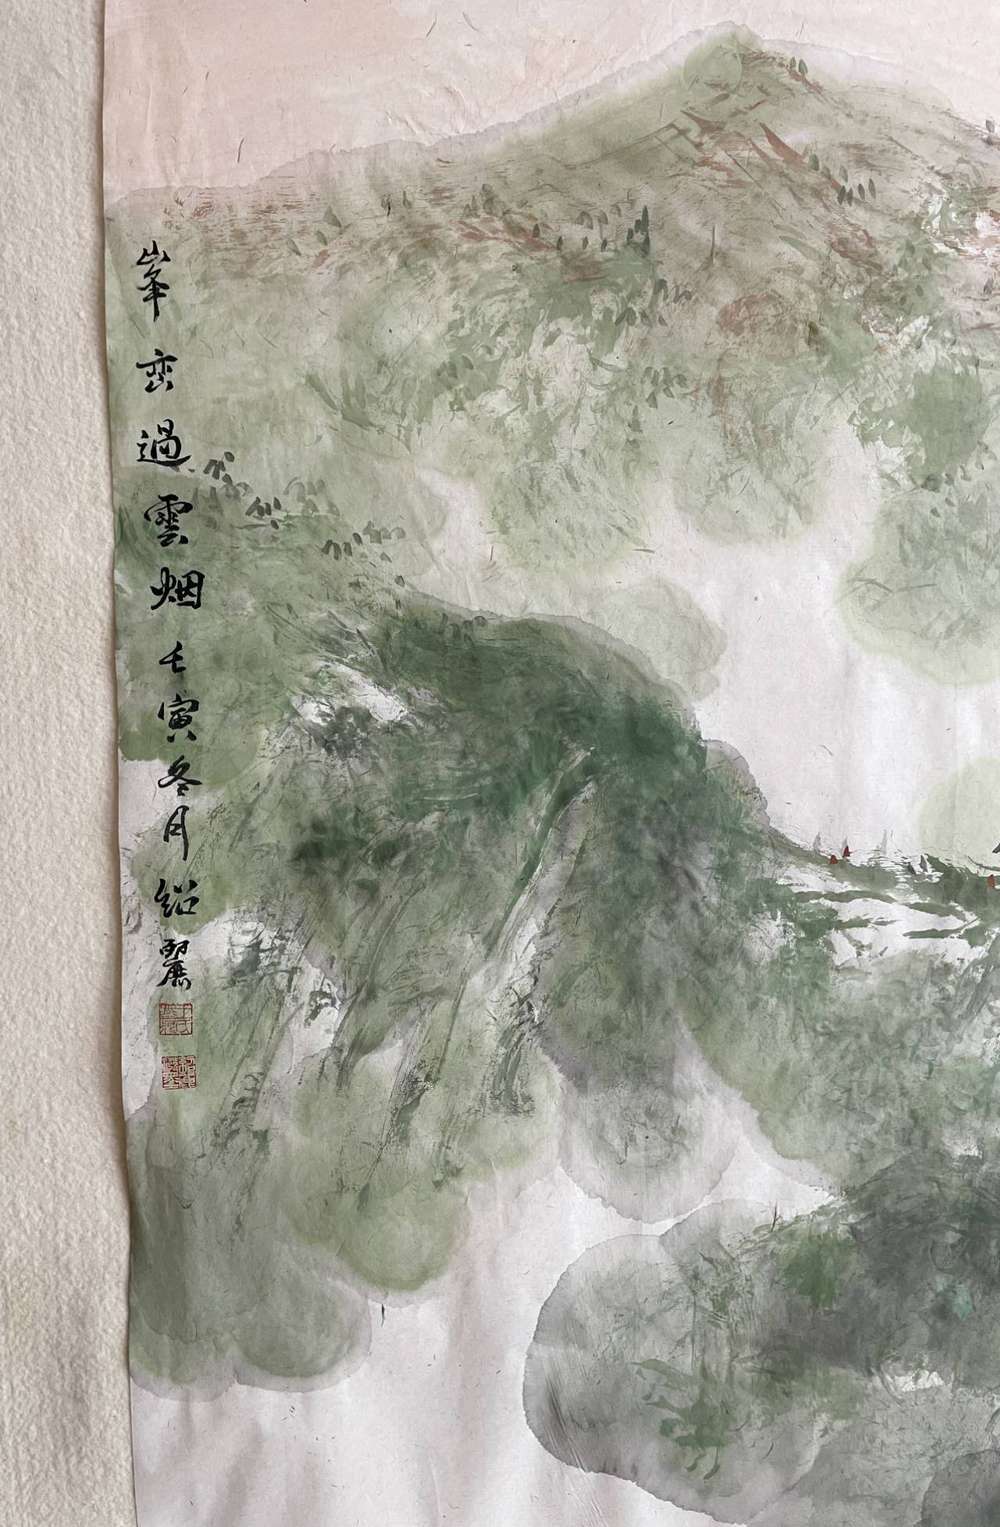 峯峦過雲烟壬寅冬月紹麗